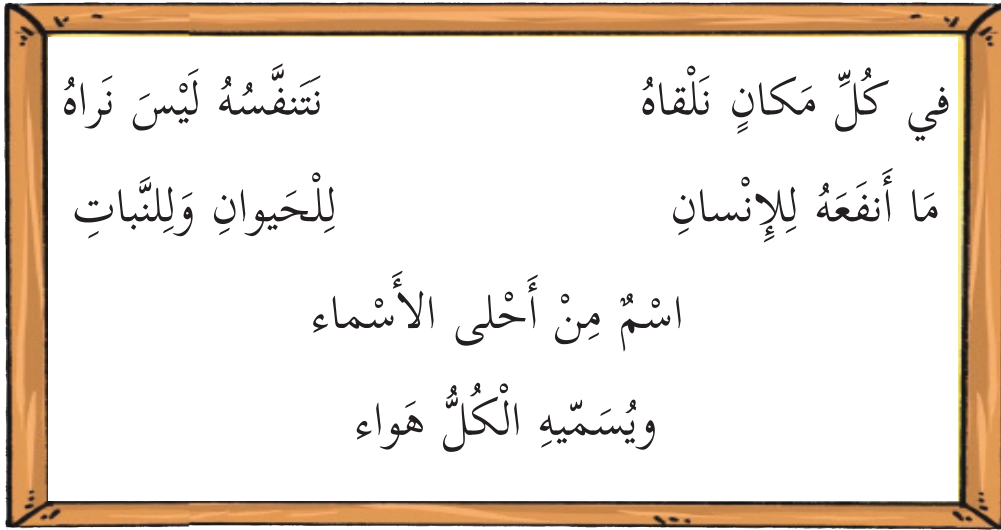 في كُلِّ مَكانٍ نَلْقاهُ نَتَنفَّسُهُ لَيْسَ نَراهُ
مَا أَنفَعَهُ لِلإِنْسانِ لِلْحَيوانِ وَلِلنَّباتِ
اسْمٌ مِنْ أَحْلى الأَسْماء
ويُسَمّيهِ الْكُلُّ هَواء